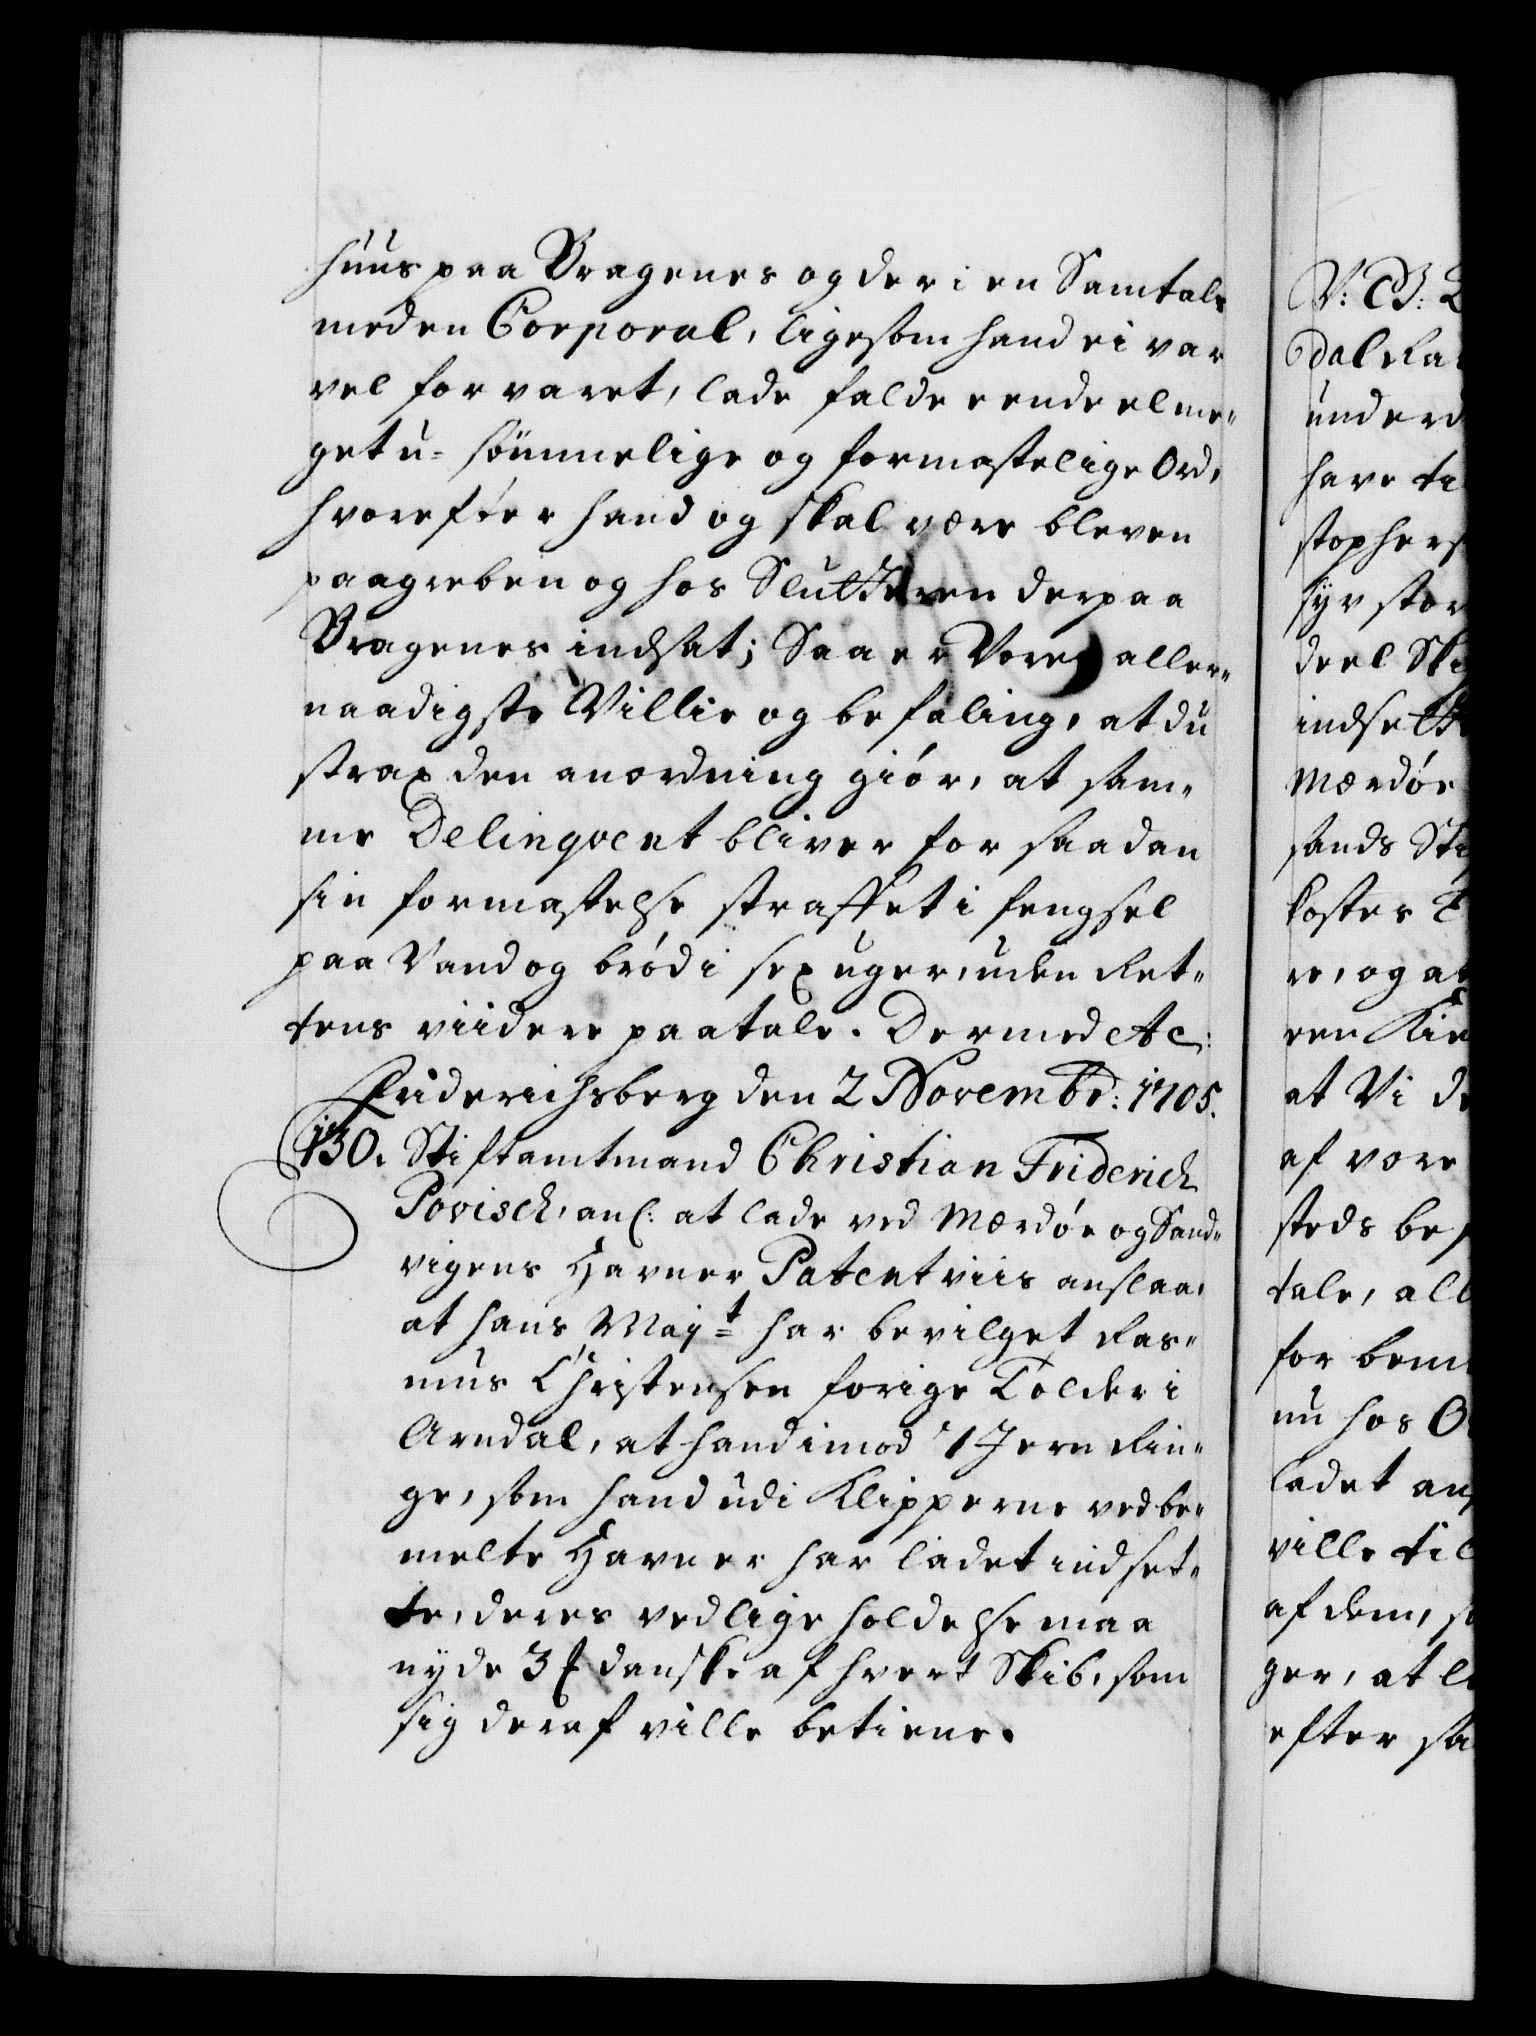 huus paa Bragenes og der i en Samtale
med en Corporal, ligesom hand ei var
vel forvaret, lade falde eendeel me„
get u-sömmelige og formastelige Ord,
hvorefter hand og skal være bleven
paagreben og hos Slutteren der paa
Bragenes indsat; Saa er Vores aller„
naadigste Villie og befaling, at du
strax den anordning giör, at sam„
me Delinqvent bliver for saadan
sin formastelse straffet i fengsel
paa Vand og bröd i sex uger, uden Ret„
tens viidere paatale. Dermed etc:
Friderichsberg den 2 Novembr: 1705.
130. Stiftamtmand Christian Friderich
Povisch, anl: at lade ved Mærdöe og Sand„
vigens Havner Patentviis anslaa,
at hans Mayt har bevilget Ras„
mus Christensen forige Tolder i
Arndal, at hand imod 7 Jern Rin„
ge, som hand udi Klipperne ved be„
melte Havner har ladet indset„
te, deres vedligeholdelse maa
nyde 3 ß danske af hvert Skib, som
sig deraf ville betiene.
V: G:
dal Ra
underd
have ti
stophers
syv stor
deel Ski
indsett
Mærdöe
sands Sti
kostes
re, og at
ren Kie
at Vi de
af vore
steds be
tale, all
for bem
nu hos O
ladet an
ville til
af dem, so
ger, at l
efter sa